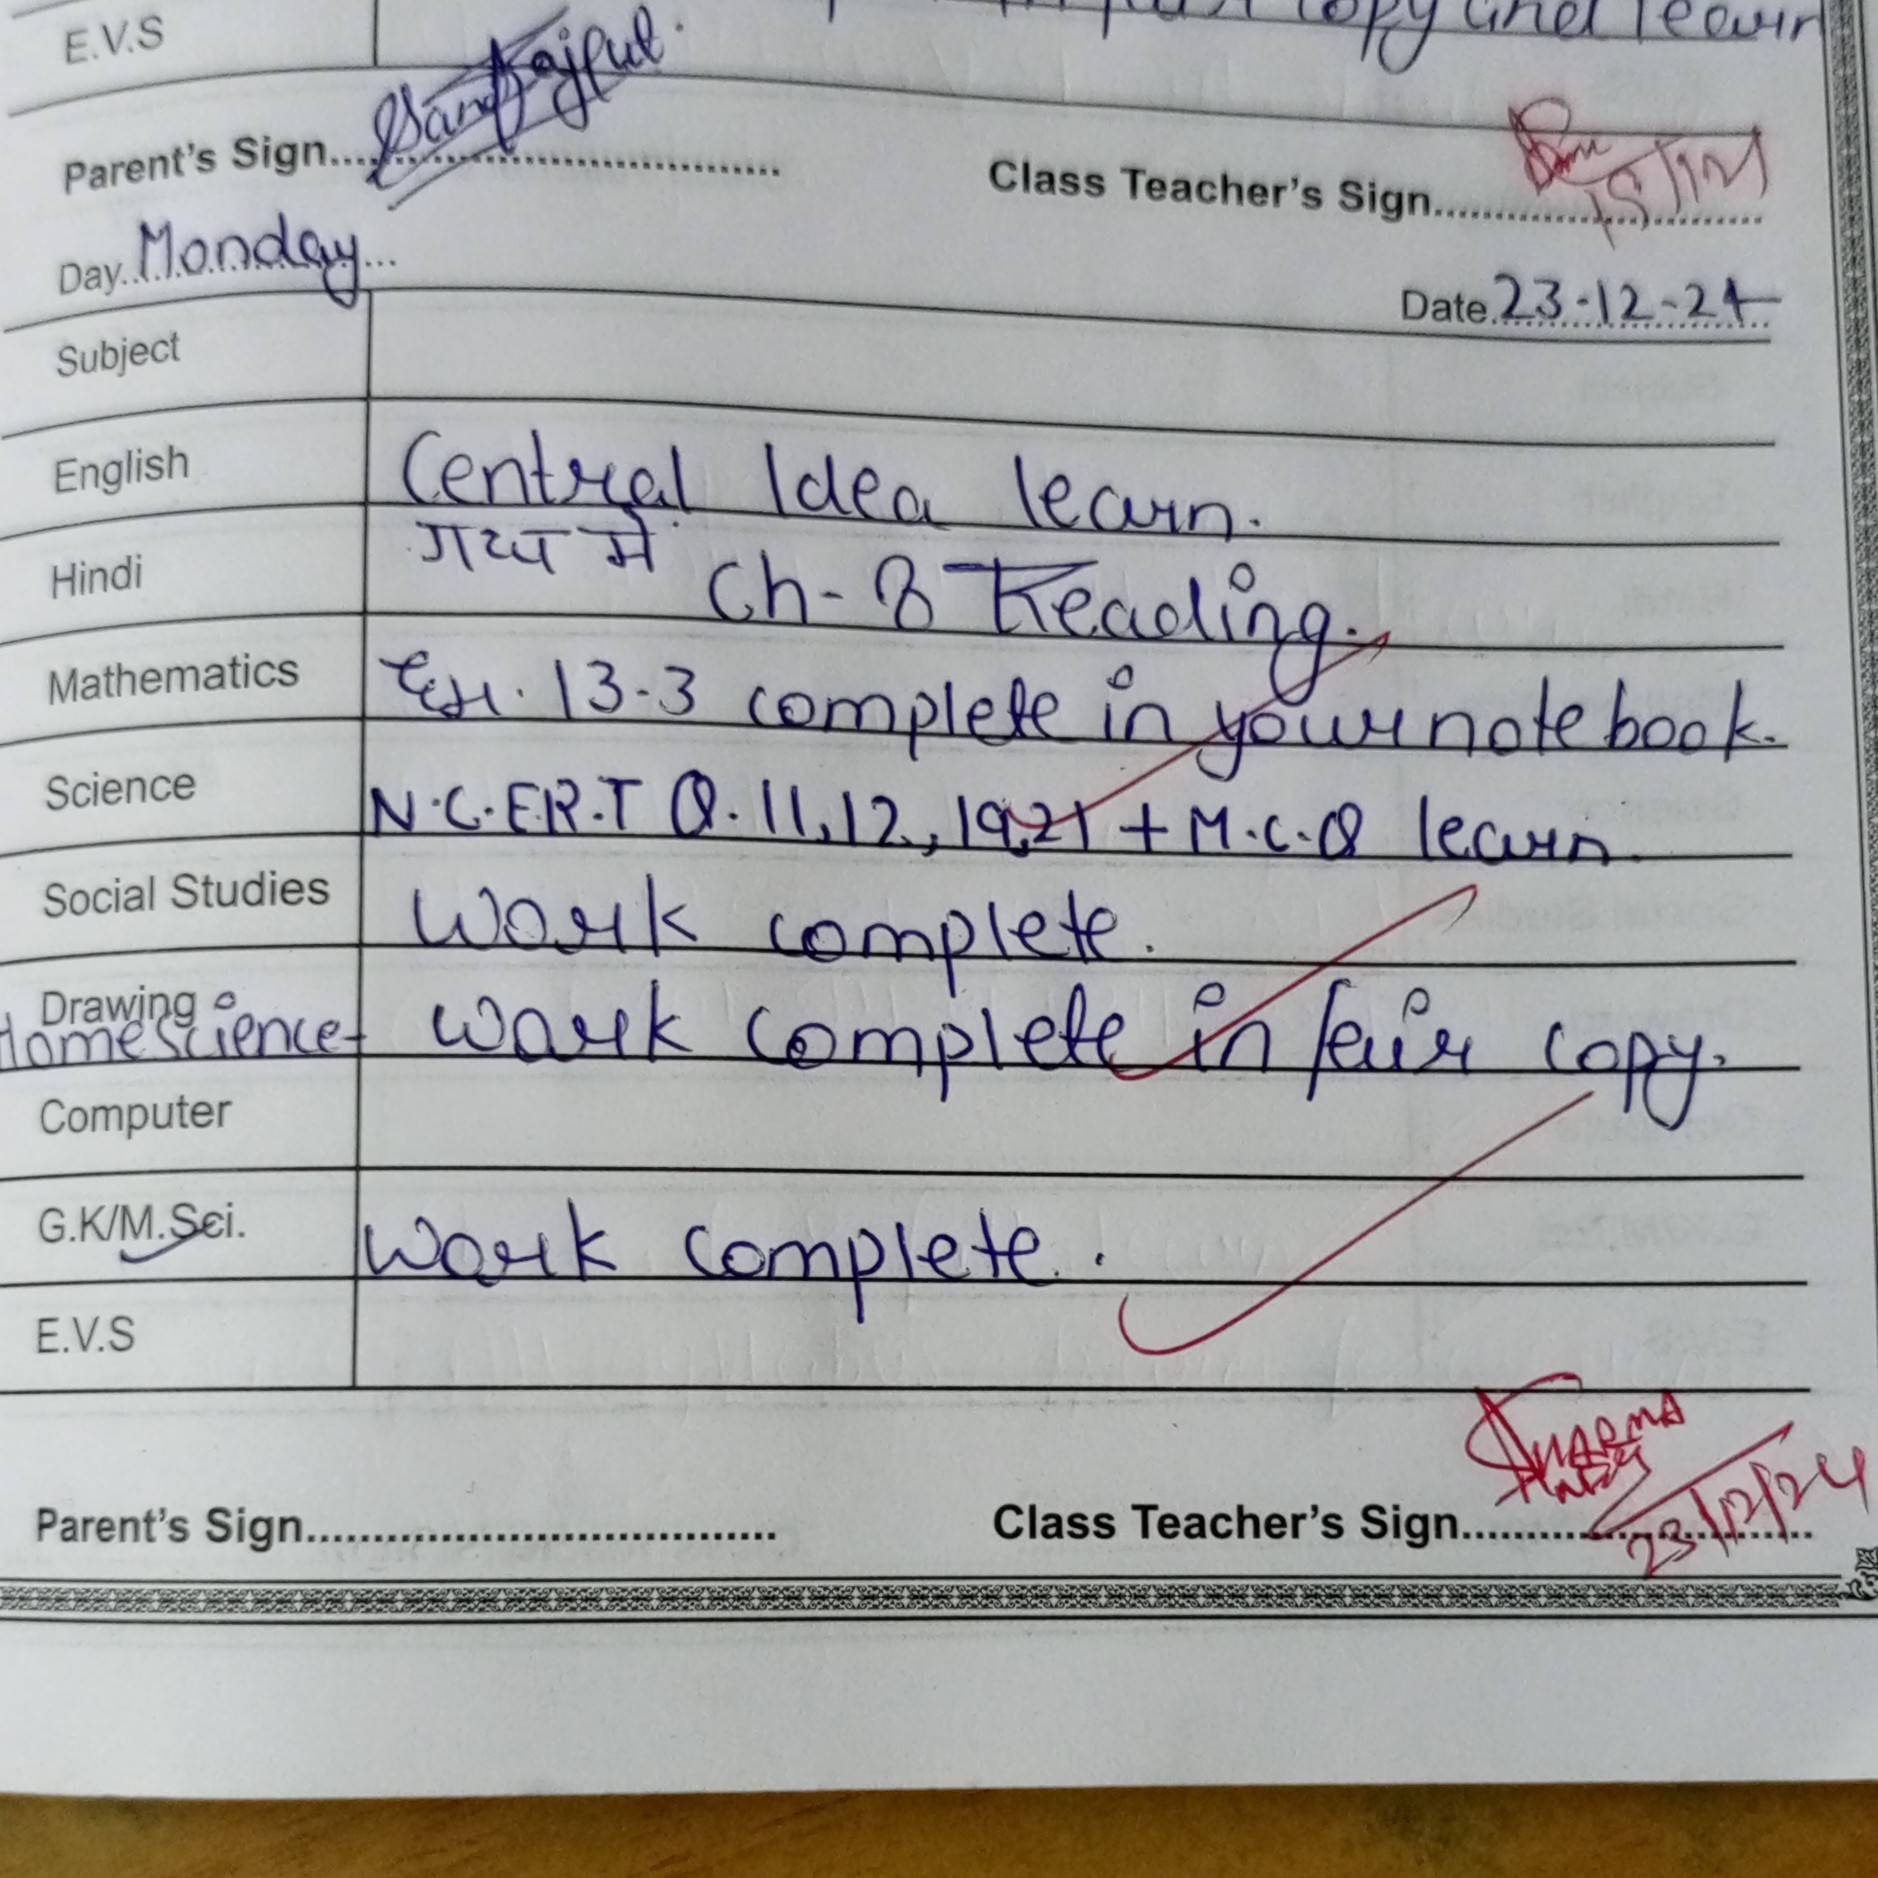 copy and learn
E.V.S
Parent's Sign.....
Class Teacher's Sign.....
Day Monday
Date 23-12-24
Subject
English Central Idea learn.
Hindi गद्य में Ch-8 Reading.
Mathematics Ex. 13.3 complete in your notebook.
Science N.C.E.R.T Q. 11, 12, 19, 21 + M.C.Q learn.
Social Studies Work complete.
Drawing
Homescience- Work complete in fair copy.
Computer
G.K/M.Sci. Work complete.
E.V.S
Parent's Sign.....
Class Teacher's Sign..... 23/12/24